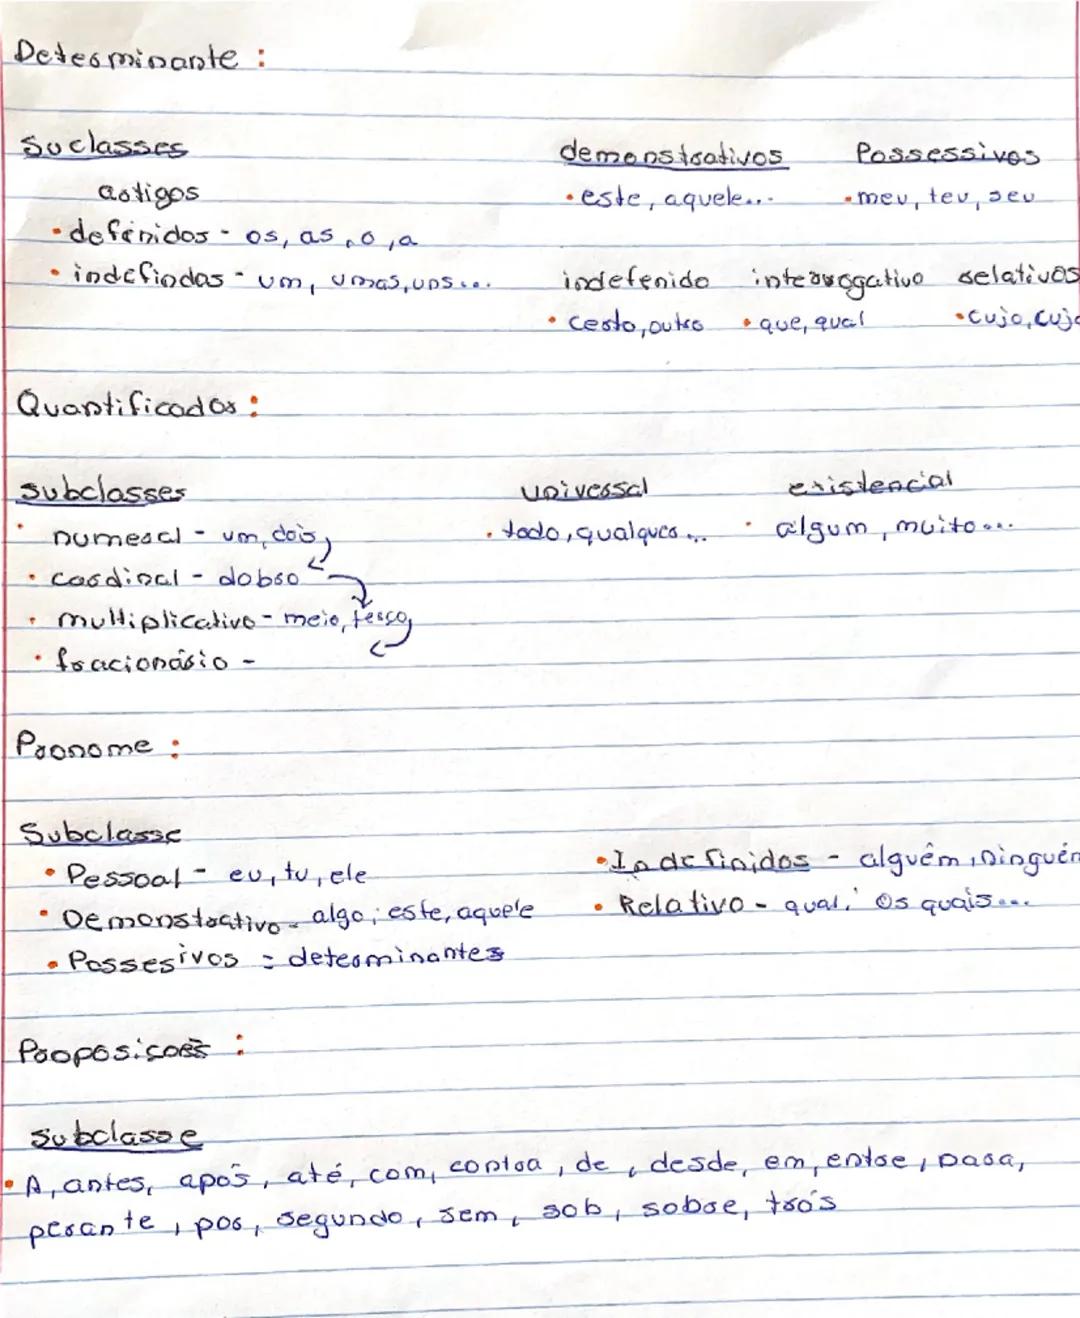 Determinante :
Suclasses
artigos
• defenidos - os, as, o, a
• indefindos - um, umas, uns...
demonstrativos
• este, aquele...
Possessivos
• meu, teu, seu
indefenido
• certo, outro
interrogativo
• que, qual
relativos
• cujo, cuja
Quantificador :
subclasses
• numeral - um, dois,
• cardinal - dobro
• multiplicativo - meio, terço,
• fracionário -
universal
• todo, qualquer...
existencial
• algum, muito...
Pronome :
Subclasse
• Pessoal - eu, tu, ele
• Demonstrativo - algo; este, aquele
• Possesivos = determinantes
• Indefinidos - alguêm, ninguém
• Relativo - qual; os quais...
Proposições :
subclasse
• A, antes, após, até, com, contra, de, desde, em, entre, para,
perante, por, segundo, sem, sob, sobre, trás